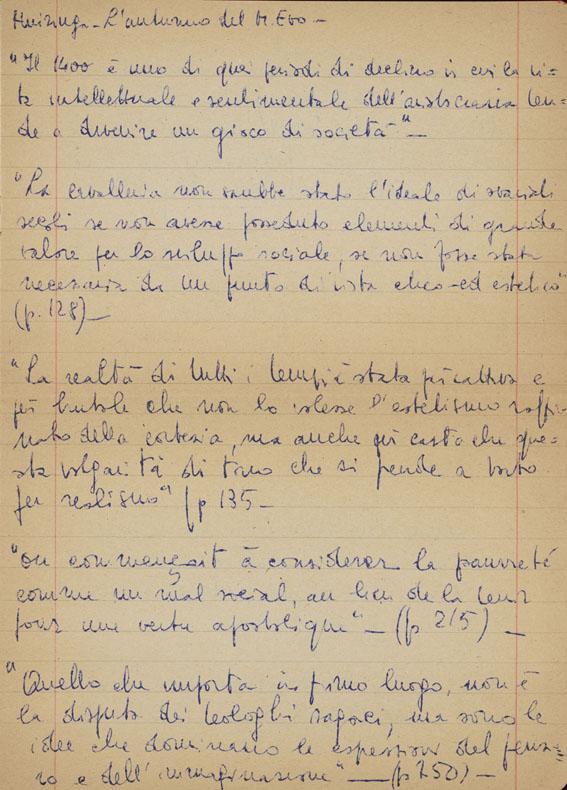 Huizinga - L'autunno del M. Evo -
"Il 1400 è uno di quei periodi di declino in cui la vi=
ta intellettuale e sentimentale dell'aristocrazia ten=
de a divenire un gioco di società" -
"La cavalleria non sarebbe stato l'ideale di svariati
secoli se non avesse posseduto elementi di grande
valore per lo sviluppo sociale, se non fosse stata
necessaria da un punto di vista etico-ed estetico"
(p. 128) -
"La realtà di tutti i tempi è stata più cattiva e
più brutale che non lo volesse l'estetismo raffi=
nato della cortesia, ma anche più casta che que=
sta volgarità di tono che si prende a torto
per realismo" (p 135 -
"on commençait à considerer la pauvreté
comme un mal social, au lieu de la tenir
pour une vertu apostolique" - (p 215) -
"Quello che importa in primo luogo, non è
la disputa dei teologhi sagaci, ma sono le
idee che dominano le espressioni del pensie=
ro e dell'immaginazione" - (p 250) -